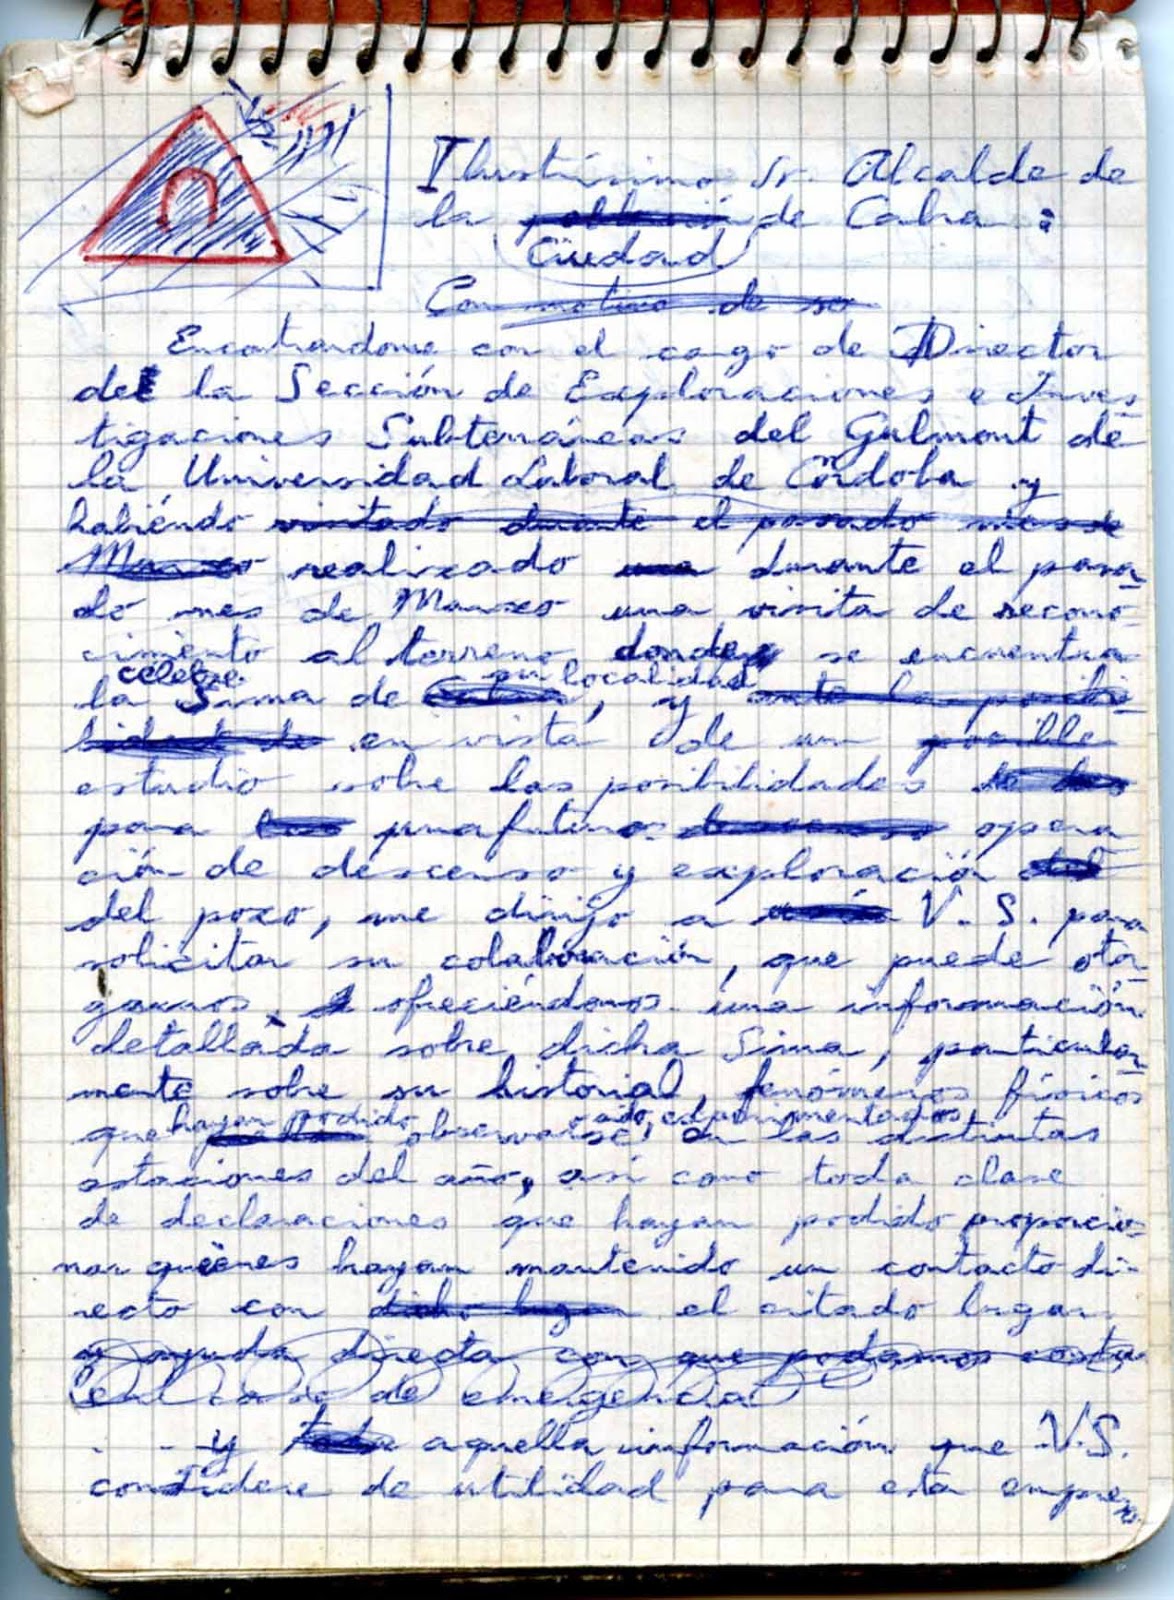 Ilustrísimo Sr. Alcalde de
la población de Cabra :
Ciudad
Con motivo de
Encontrandome con el cargo de Director
del la Sección de Exploraciones e Inves
tigaciones Subterráneas del Gulmont de
la Universidad Laboral de Córdoba y
habiéndo visitado durante el pasado mes de
Marzo realizado una durante el pasa
do mes de Marzo una visita de recono
cimiento al terreno donde se encuentra
célebre su localidad
la Sima de Cabra, y ante la posibi
lidad de en vista de un posible
estudio sobre las posibilidades de las
para una futura descenso opera
ción de descenso y exploración del
del pozo, me dirijo a V. S. para
solicitar su colaboración, que puede otor
garnos, ofreciéndonos una información
detallada sobre dicha Sima, particular
mente sobre su historial, fenómenos físicos
hayan podido o experimentados
que observarse, en las distintas
estaciones del año, así como toda clase
de declaraciones que hayan podido proporcio
nar quienes hayan mantenido un contacto di-
recto con dicho lugar el citado lugar
y ayuda directa con que podamos
en caso de emergencia
y toda aquella información que V.S.
considere de utilidad para esta empre
sa.